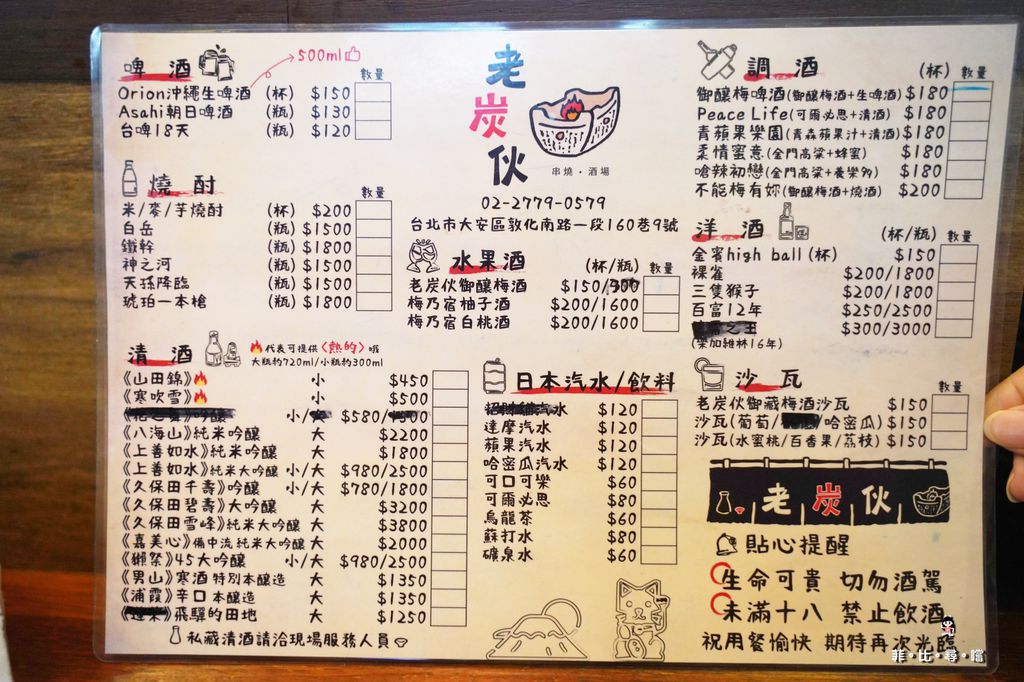 啤酒
500ml
數量
Orion沖繩生啤酒 (杯) $150
Asahi朝日啤酒 (瓶) $130
台啤18天 (瓶) $120
燒酎
數量
米/麥/芋燒酎 (杯) $200
白岳 (瓶) $1500
鐵幹 (瓶) $1800
神之河 (瓶) $1500
天孫降臨 (瓶) $1500
琥珀一本槍 (瓶) $1800
清酒
代表可提供<熱的>哦
大瓶約720ml/小瓶約300ml
《山田錦》 小 $450
《寒吹雪》 小 $500
吟釀 小/ $580/
《八海山》純米吟釀 大 $2200
《上善如水》純米吟釀 大 $1800
《上善如水》純米大吟釀 小/大 $980/2500
《久保田千壽》吟釀 小/大 $780/1800
《久保田碧壽》大吟釀 大 $3200
《久保田雪峰》純米大吟釀 大 $3800
《嘉美心》備中流 純米大吟釀 大 $2000
《獺祭》45大吟釀 小/大 $980/2500
《男山》寒酒 特別本釀造 大 $1350
《浦霞》辛口 本釀造 大 $1350
飛驒的田地 大 $1250
私藏清酒請洽現場服務人員
老炭伙
串燒・酒場
02-2779-0579
台北市大安區敦化南路一段160巷9號
水果酒 (杯/瓶) 數量
老炭伙御釀梅酒 $150/
梅乃宿柚子酒 $200/1600
梅乃宿白桃酒 $200/1600
日本汽水/飲料
汽水 $120
達摩汽水 $120
蘋果汽水 $120
哈密瓜汽水 $120
可口可樂 $60
可爾必思 $80
烏龍茶 $60
蘇打水 $80
礦泉水 $60
調酒 (杯) 數量
御釀梅啤酒(御釀梅酒+生啤酒) $180
Peace Life(可爾必思+清酒) $180
青蘋果樂園(青森蘋果汁+清酒) $180
柔情蜜意(金門高粱+蜂蜜) $180
嗆辣初戀(金門高粱+養樂多) $180
不能梅有妳(御釀梅酒+燒酒) $200
洋酒 (杯/瓶) 數量
金賓high ball (杯) $150
裸雀 $200/1800
三隻猴子 $200/1800
百富12年 $250/2500
之王 $300/3000
(樂加維林16年)
沙瓦 數量
老炭伙御藏梅酒沙瓦 $150
沙瓦(葡萄/ /哈密瓜) $150
沙瓦(水蜜桃/百香果/荔枝) $150
老炭伙
貼心提醒
生命可貴 切勿酒駕
未滿十八 禁止飲酒
祝用餐愉快 期待再次光臨
菲・比・尋・嚐